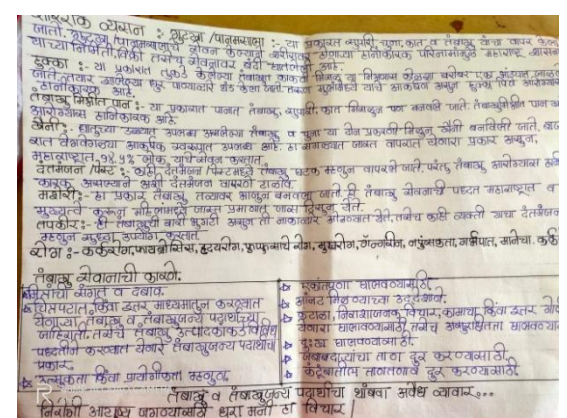 व्यसन : गुटखा/पानमसाला :- या प्रकारात सुपारी, चुना, कात व तंबाखू यांचा वापर केला
जातो. गुटखा/पानमसाल्याचे सेवन केल्याने शरीरावर होणाऱ्या हानीकारक परिणामांमुळे महाराष्ट्र शासनाने
याच्या निर्मिती, विक्री तसेच सेवनावर बंदी घातलेली आहे.
हुक्का :- या प्रकारात तुकडे केलेल्या तंबाखूत काकवी मिसळून या मिश्रणास कोळशा बरोबर एका
जाते. तयार झालेल्या धूर पाण्याव्दारे थंड केला जातो. तरुण मुलांमध्ये याचे आकर्षण असून हुक्का पिणे आरोग्यास
हानीकारक आहे.
तंबाखू मिश्रीत पान :- या प्रकारात पानात तंबाखू, सुपारी, कात मिसळून पान बनवले जाते. तंबाखूमिश्रीत पान
आरोग्यास हानिकारक आहे.
खैनी :- धातूच्या डब्यात उपलब्ध असलेल्या तंबाखू व चुना या दोन प्रकारांनी मिसळून खैनी बनविली जाते.
वेगवेगळ्या आकर्षक स्वरूपात उपलब्ध आहे. हा सगळ्यात जास्त वापरात येणारा प्रकार असून,
महाराष्ट्रात १८.५% लोक, याचे सेवन करतात.
दंतमंजन/पेस्ट :- काही दंतमंजन/पेस्टमध्ये तंबाखू घटक म्हणून वापरले जाते. परंतु तंबाखू आरोग्यास
कारक असल्याने अशी दंतमंजन वापरणे टाळावे.
मशेरी :- हा प्रकार तंबाखू तव्यावर भाजून बनवला जातो. ही तंबाखू सेवनाची पध्दत महाराष्ट्रात व
मुख्यत्वे करून महिलांमध्ये जास्त प्रमाणात जास्त दिसून येते.
तपकीर :- ही तंबाखूची बारी भुकटी असून ती नाकाव्दारे ओढण्यात येते, तसेच काही व्यक्ती याचा दंतमंजन
म्हणून सुध्दा उपयोग करतात.
रोग :- कर्करोग, फायब्रोसिस, हृदयरोग, फुफ्फुसाचे रोग, मुखरोग, गँन्गरीन, नपुंसकता, गर्भपात, मानेचा
तंबाखू सेवानाची कारणे.
मित्रांची संगत व दबाव.
चित्रपटात, किंवा इतर माध्यमातून करण्यात
येणाऱ्या तंबाखू व तंबाखूजन्य पदार्थांच्या
जाहिराती. तसेच तंबाखू उत्पादकांकडे विविध
पध्दतीने करण्यात येणारे तंबाखूजन्य पदार्थांचा
प्रकार.
उत्सुकता किंवा प्रायोगिकता म्हणून.
एकांतपणा घालवण्यासाठी.
आनंद मिळवण्याच्या उद्देशाने.
कंटाळा, निराशाजनक विचार, कामाचा किंवा इतर
येणारा घालवण्यासाठी तसेच असुरक्षितता घालवण्या
दुःख घालवण्यासाठी.
जबाबदाऱ्यांचा ताण दूर करण्यासाठी.
कुटुंबातील ताणतणाव दूर करण्यासाठी.
तंबाखू व तंबाखूजन्य पदार्थांचा थांबवा अवैध व्यापार...
निरोगी आयुष्य जगण्यासाठी धरा मनी हा विचार!